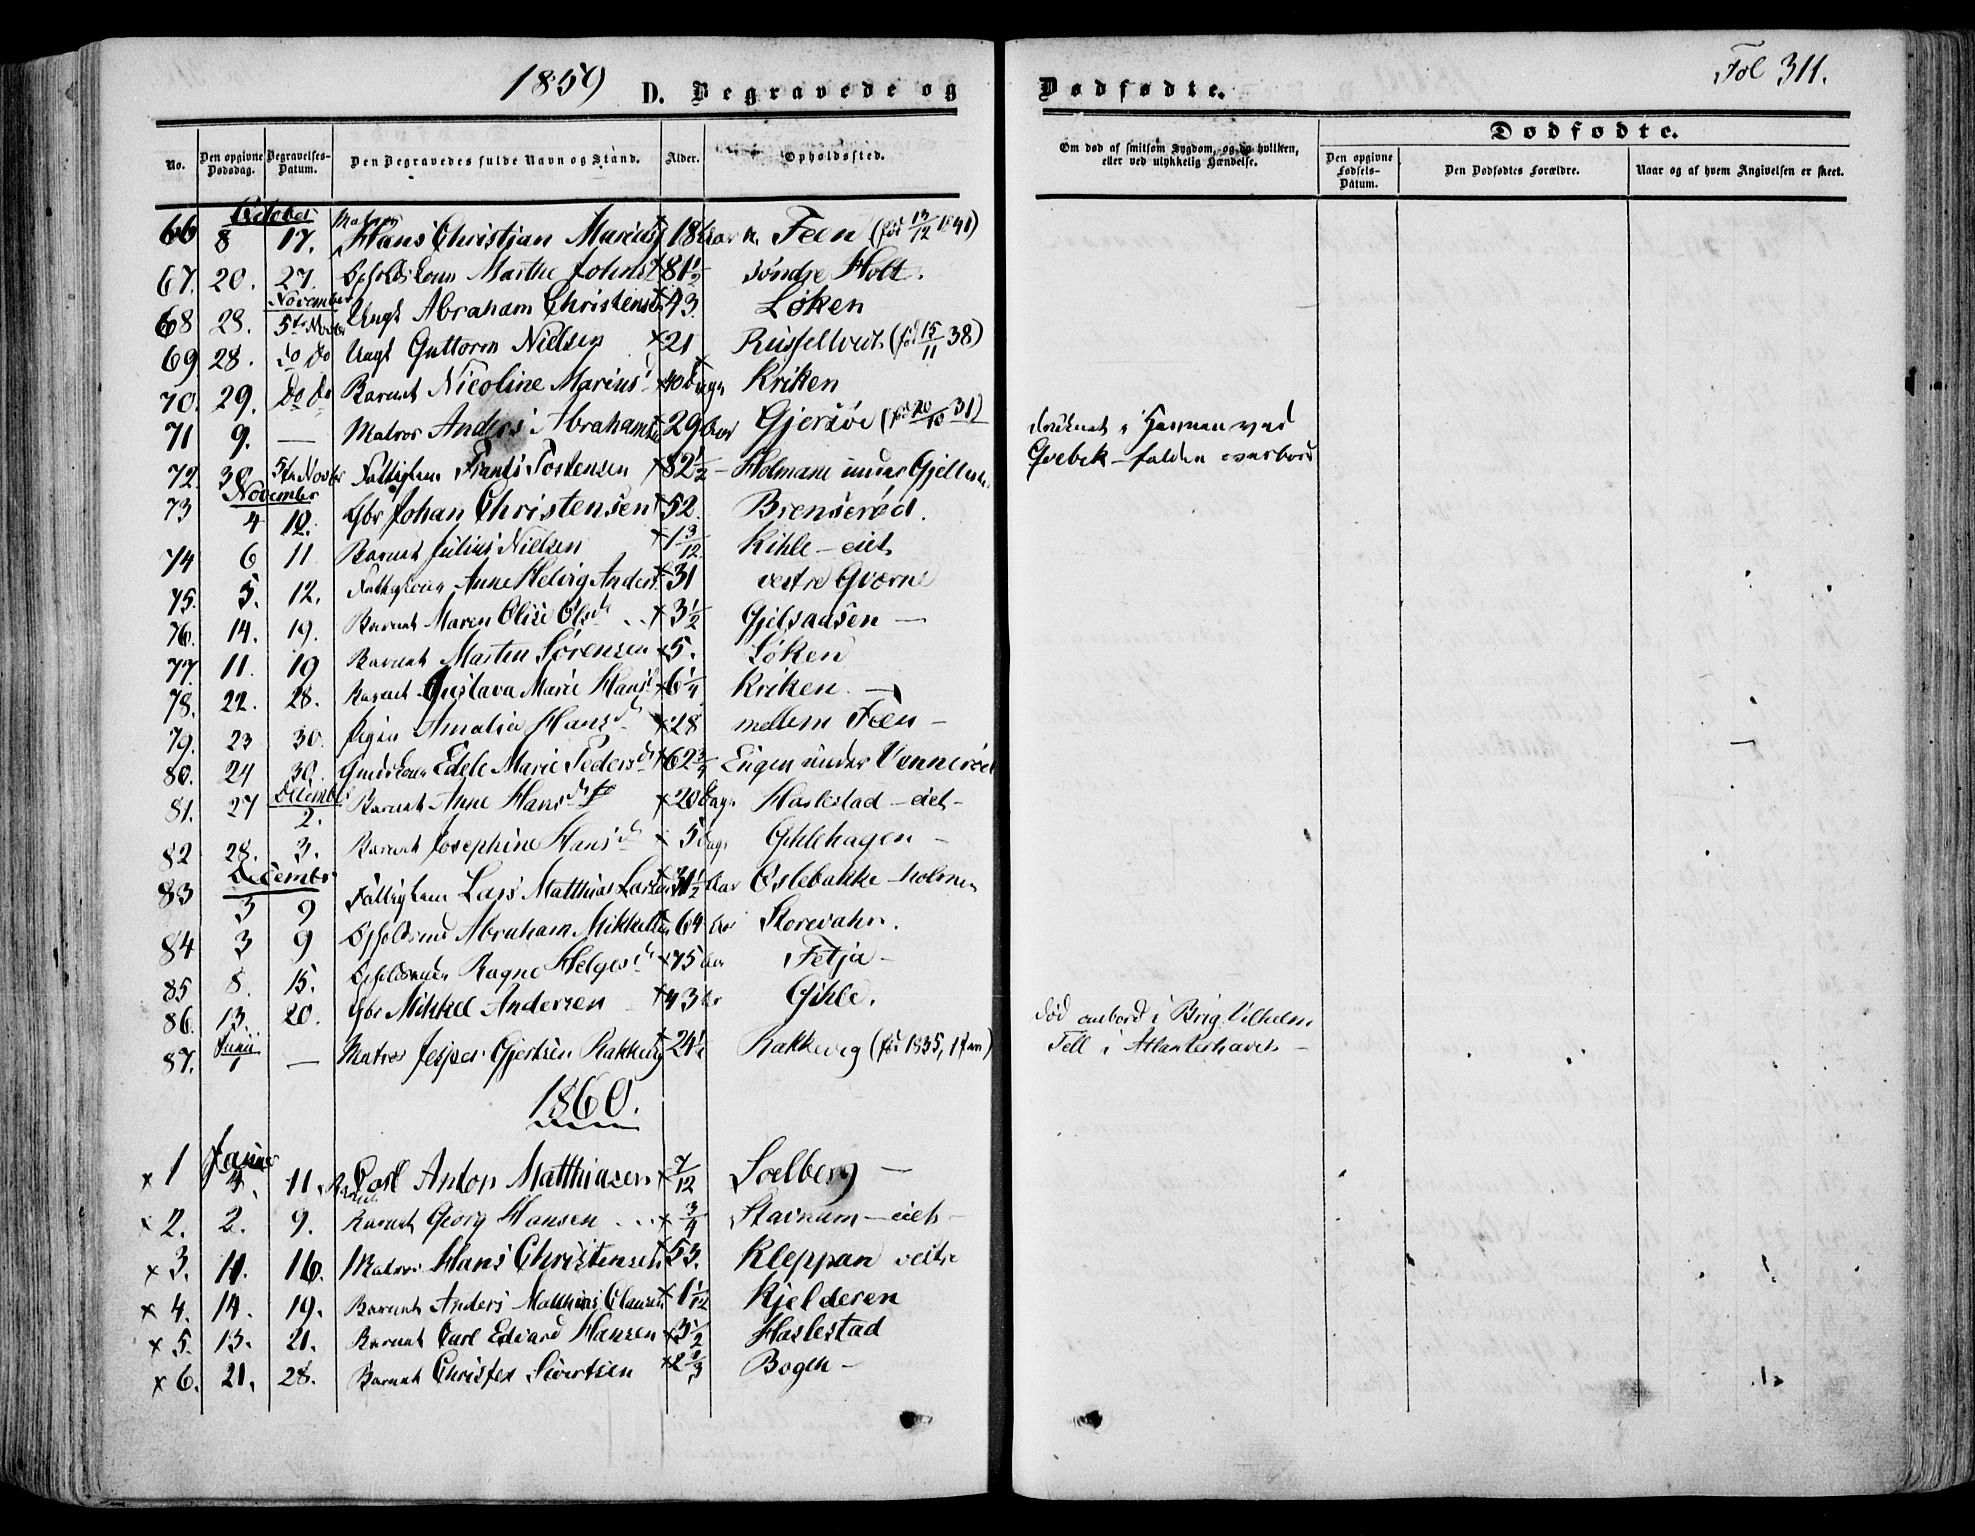 1859 D. Begravede og Dødfødte. Fol 311.
No. Den opgivne Dødsdag. Begravelses-Datum. Den Begravedes fulde Navn og Stand. Alder. Opholdssted. Om død af smitsom Sygdom, og da hvilken, eller ved ulykkelig Hændelse.
Dødfødte.
Den opgivne Fødsels-Datum. Den Dødfødtes Forældre. Naar og af hvem Angivelsen er skeet.
October
66 8 17. Matros Hans Christian Marius 18 Aar n. Feen (fød 13/12 1841)
67. 20. 27. Marthe Johns 81½ søndre Holt.
November
68 28. 5te Novbr Ungk Abraham Christensen 43. Løken
69 28. do do Ungk Guttorm Nielsen 21 (fød 15/11 38)
70. 29. do do Barnet Nicoline Marius d 10 Dage Kriken
71 9. — Matros Anders Abrahams 29 Aar Gjersøe (fød 20/10 31) druknet i Havnen ved
Qvebek – falden overbord
72. 30 5te Novbr Fattiglem Frants Tostensen 82½ Holmane under
November
73 4 12. Gbr Johan Christensen 52. Brenserød.
74 6 11 Barnet Julius Nielsen 1 3/12 Kihle – eiet
75. 5. 12. Anne Helvig Anders 31 vestre Qværne
76. 14. 19. Barnet Maren Olise Ols d 3½ Gjelsaasen —
77. 11. 19 Barnet Martin Sørensen 5. Løken
78. 22. 28. Barnet Gustava Marie Hans 6¼ Kriken. —
79. 23 30. Pigen Amalia Hans d 28 mellem Feen –
80. 24 30. Edele Marie Peders d 62¾ Engen under Vennerød
December
81. 27 2. Barnet Anne Hans d 20 Dage Haslestad – eiet –
82 28. 3. Barnet Josephine Hans d 5 Dage Gihlehagen –
December
83 3 9 Fattiglem Lars Matthias Larsen 31½ Aar Øslebakke holmen
84 3 9 Abraham Mikkelsen 64 Aar Storevahr.
85 8. 15. Ragne Helges d 75 Aar Fetja –
86. 13. 20. Gbr Mikkel Andersen 43 Aar Gihle.
Junii
87. 1 — Matros Jesper Gjertsen Rakkevig 24½ Rakkevig (fød 1835, 1 Jan) død ombord i Brig. Vilhelm
Tell i Atlanterhavet –
1860.
Januar
x 1 4. 11. Barnet Carl Anton Matthiasen 7/12 Soelberg —
x 2. 2. 9. Barnet Georg Hansen ... ¾ Stavnum – eiet –
x 3. 11. 16. Matros Hans Christensen 53. Kleppan vestre
x 4. 14. 19. Barnet Anders Matthias Clausen 1 1/12 Kjelderen
x 5. 13. 21. Barnet Carl Edvard Hansen 3½ Haslestad
x 6. 21. 28. Barnet Christen Sivertsen Bogen –